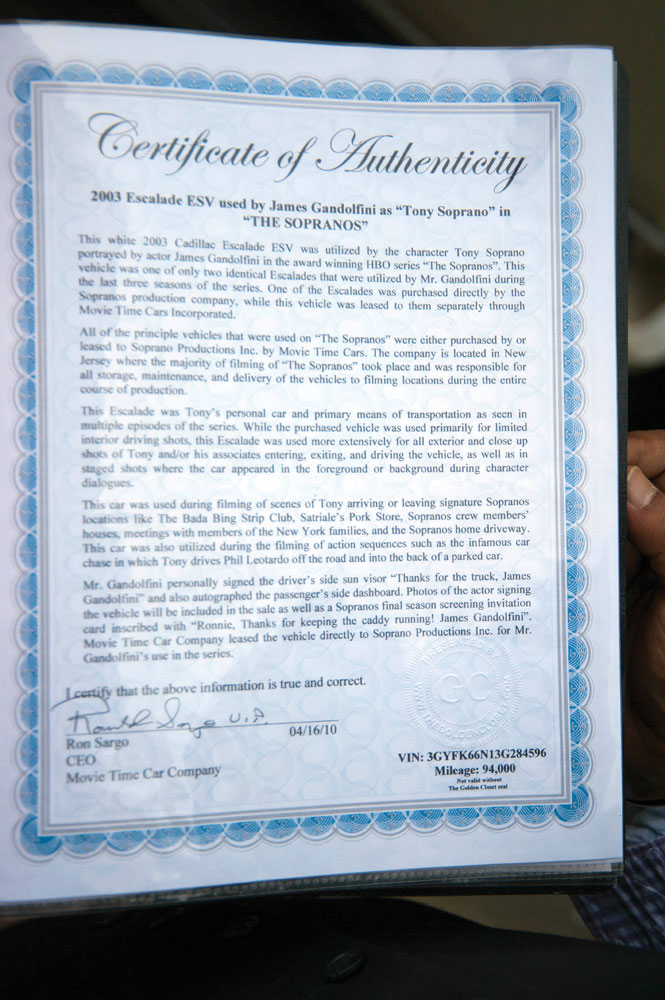 Certificate of Authenticity
2003 Escalade ESV used by James Gandolfini as “Tony Soprano” in
“THE SOPRANOS”
This white 2003 Cadillac Escalade ESV was utilized by the character Tony Soprano
portrayed by actor James Gandolfini in the award winning HBO series “The Sopranos”. This
vehicle was one of only two identical Escalades that were utilized by Mr. Gandolfini during
the last three seasons of the series. One of the Escalades was purchased directly by the
Sopranos production company, while this vehicle was leased to them separately through
Movie Time Cars Incorporated.
All of the principle vehicles that were used on “The Sopranos” were either purchased by or
leased to Soprano Productions Inc. by Movie Time Cars. The company is located in New
Jersey where the majority of filming of “The Sopranos” took place and was responsible for
all storage, maintenance, and delivery of the vehicles to filming locations during the entire
course of production.
This Escalade was Tony’s personal car and primary means of transportation as seen in
multiple episodes of the series. While the purchased vehicle was used primarily for limited
interior driving shots, this Escalade was used more extensively for all exterior and close up
shots of Tony and/or his associates entering, exiting, and driving the vehicle, as well as in
staged shots where the car appeared in the foreground or background during character
dialogues.
This car was used during filming of scenes of Tony arriving or leaving signature Sopranos
locations like The Bada Bing Strip Club, Satriale’s Pork Store, Sopranos crew members’
houses, meetings with members of the New York families, and the Sopranos home driveway.
This car was also utilized during the filming of action sequences such as the infamous car
chase in which Tony drives Phil Leotardo off the road and into the back of a parked car.
Mr. Gandolfini personally signed the driver’s side sun visor “Thanks for the truck, James
Gandolfini” and also autographed the passenger’s side dashboard. Photos of the actor signing
the vehicle will be included in the sale as well as a Sopranos final season screening invitation
card inscribed with “Ronnie, Thanks for keeping the caddy running! James Gandolfini”.
Movie Time Car Company leased the vehicle directly to Soprano Productions Inc. for Mr.
Gandolfini’s use in the series.
I certify that the above information is true and correct.
04/16/10
Ron Sargo
CEO
Movie Time Car Company
PRESENTED BY
GC
VIN: 3GYFK66N13G284596
Mileage: 94,000
Not valid without
The Golden Closet seal